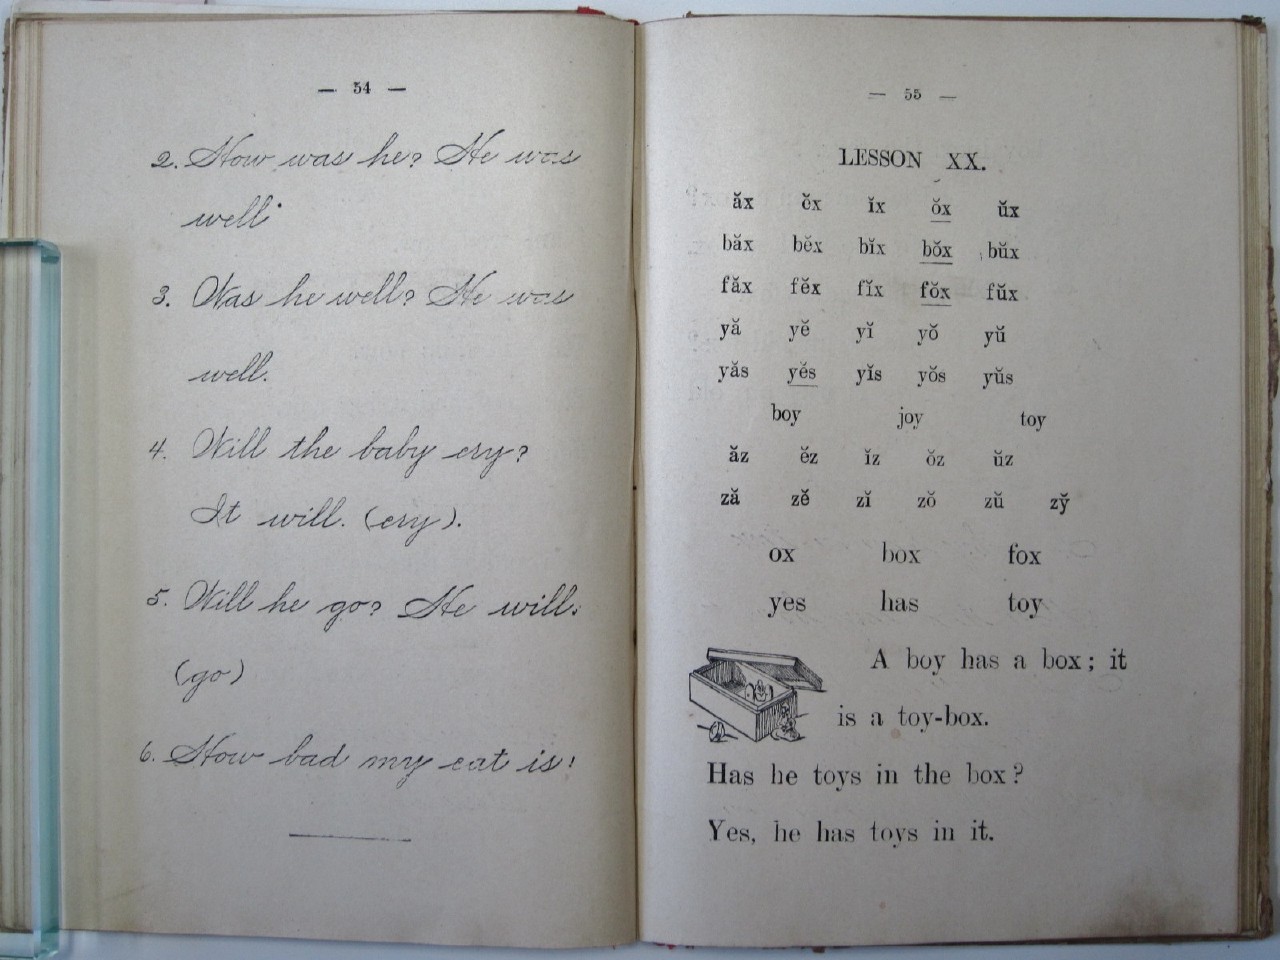 — 54 —
2. How was he? He was
well.
3. Was he well? He was
well.
4. Will the baby cry?
It will. (cry).
5. Will he go? He will.
(go)
6. How bad my cat is!
— 55 —
LESSON XX.
ăx ĕx ĭx ŏx ŭx
băx bĕx bĭx bŏx bŭx
făx fĕx fĭx fŏx fŭx
yă yĕ yĭ yŏ yŭ
yăs yĕs yĭs yŏs yŭs
boy joy toy
ăz ĕz ĭz ŏz ŭz
ză zĕ zĭ zŏ zŭ zy̆
ox box fox
yes has toy
A boy has a box; it
is a toy-box.
Has he toys in the box?
Yes, he has toys in it.